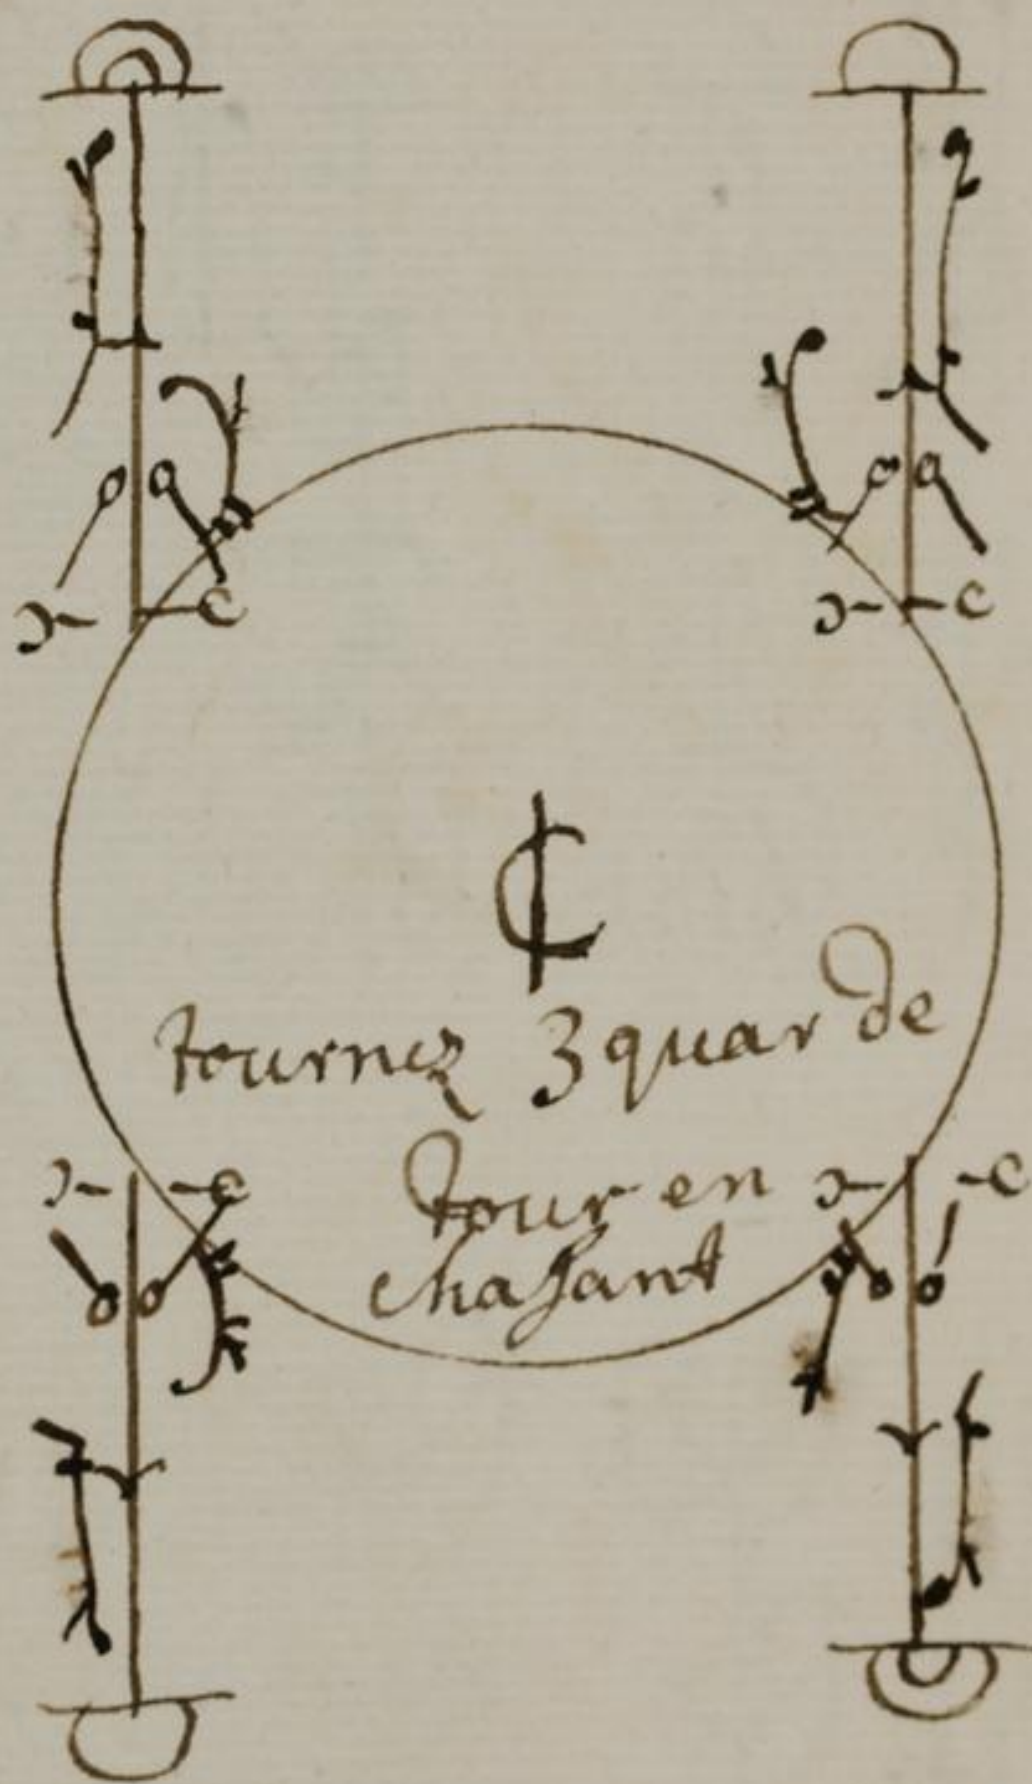 ₵
tournez 3 quar de
tour en
chasant